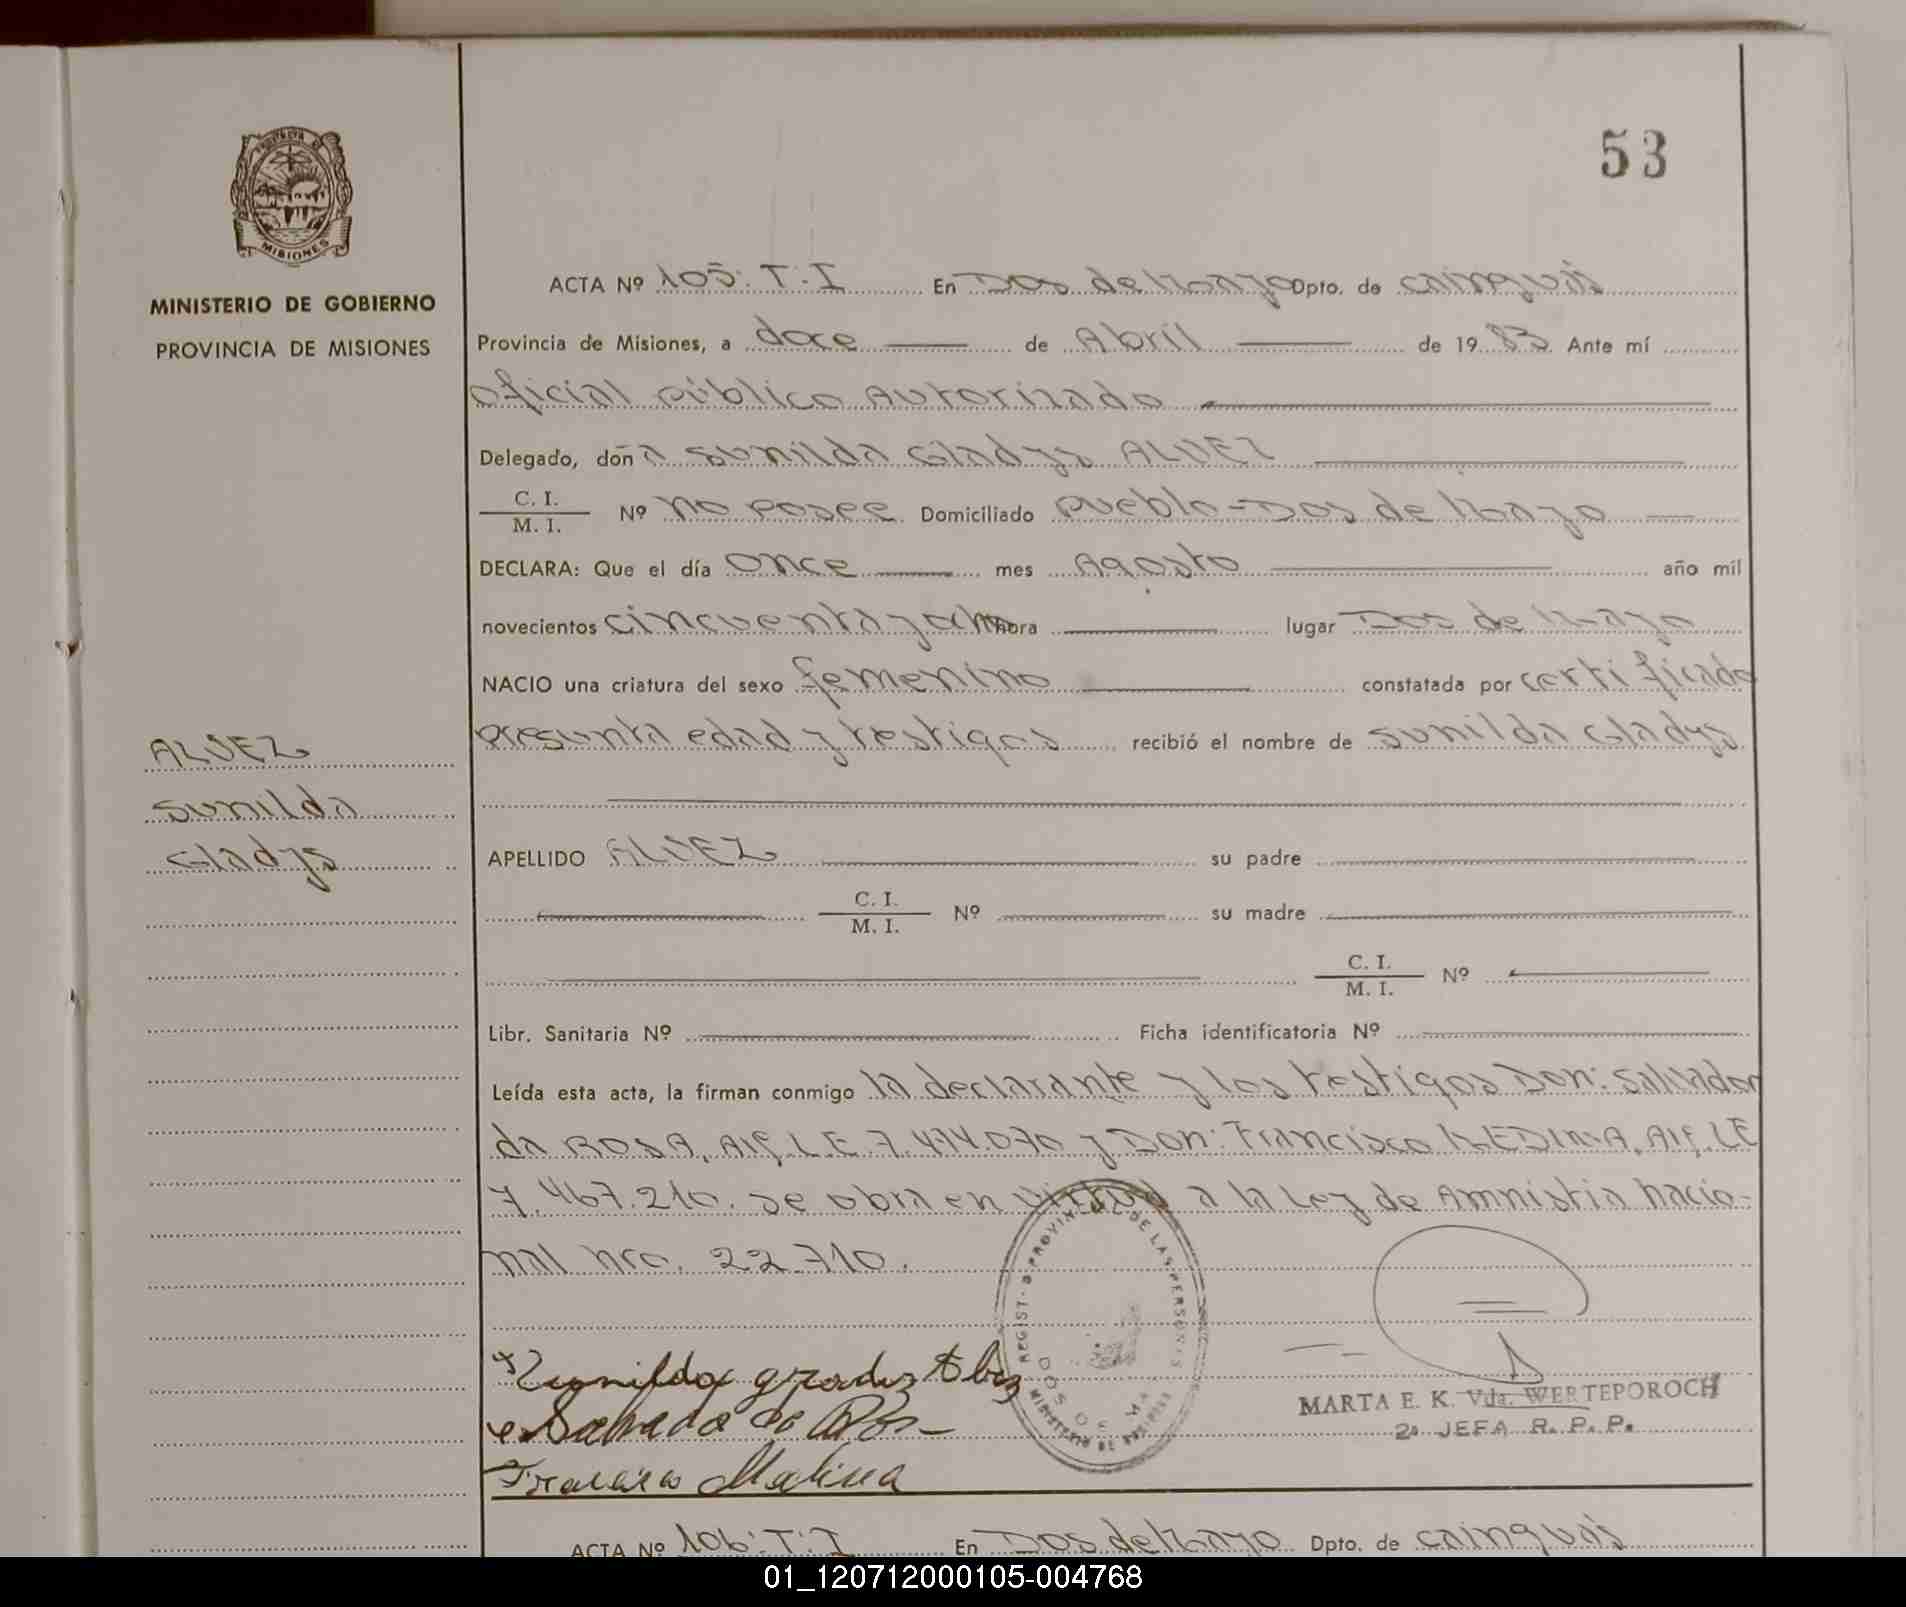 53
MISIONES
MINISTERIO DE GOBIERNO
PROVINCIA DE MISIONES
ACTA Nº 105. T. I En Dos de Mayo Dpto. de Cainguás
Provincia de Misiones, a doce de Abril de 1983 Ante mí
oficial público Autorizado
Delegado, doña Sunilda Gladys ALVEZ
C. I. / M. I. Nº no posee Domiciliado pueblo - Dos de Mayo
DECLARA: Que el día once mes Agosto año mil
novecientos cincuenta y ocho hora lugar Dos de Mayo
NACIO una criatura del sexo femenino constatada por certificado
presunta edad y testigos recibió el nombre de Sunilda Gladys
ALVEZ
Sunilda
Gladys
APELLIDO ALVEZ su padre
C. I. / M. I. Nº su madre
C. I. / M. I. Nº
Libr. Sanitaria Nº Ficha identificatoria Nº
Leída esta acta, la firman conmigo la declarante y los testigos Don: Salvador
da ROSA, Arg. L.E. 7.474.070 y Don: Francisco MEDINA, Arg. LE
7.467.210. Se obra en virtud a la Ley de Amnistia nacio-
nal nro. 22.710.
REGIST. PROVINCIAL DE LAS PERSONAS
DOS DE MAYO
MINISTERIO DE GOBIERNO
MARTA E. K. Vda. WERTEPOROCH
2ª JEFA R. P. P.
ACTA Nº 106. T. I En Dos de Mayo Dpto. de Cainguás
01_120712000105-004768